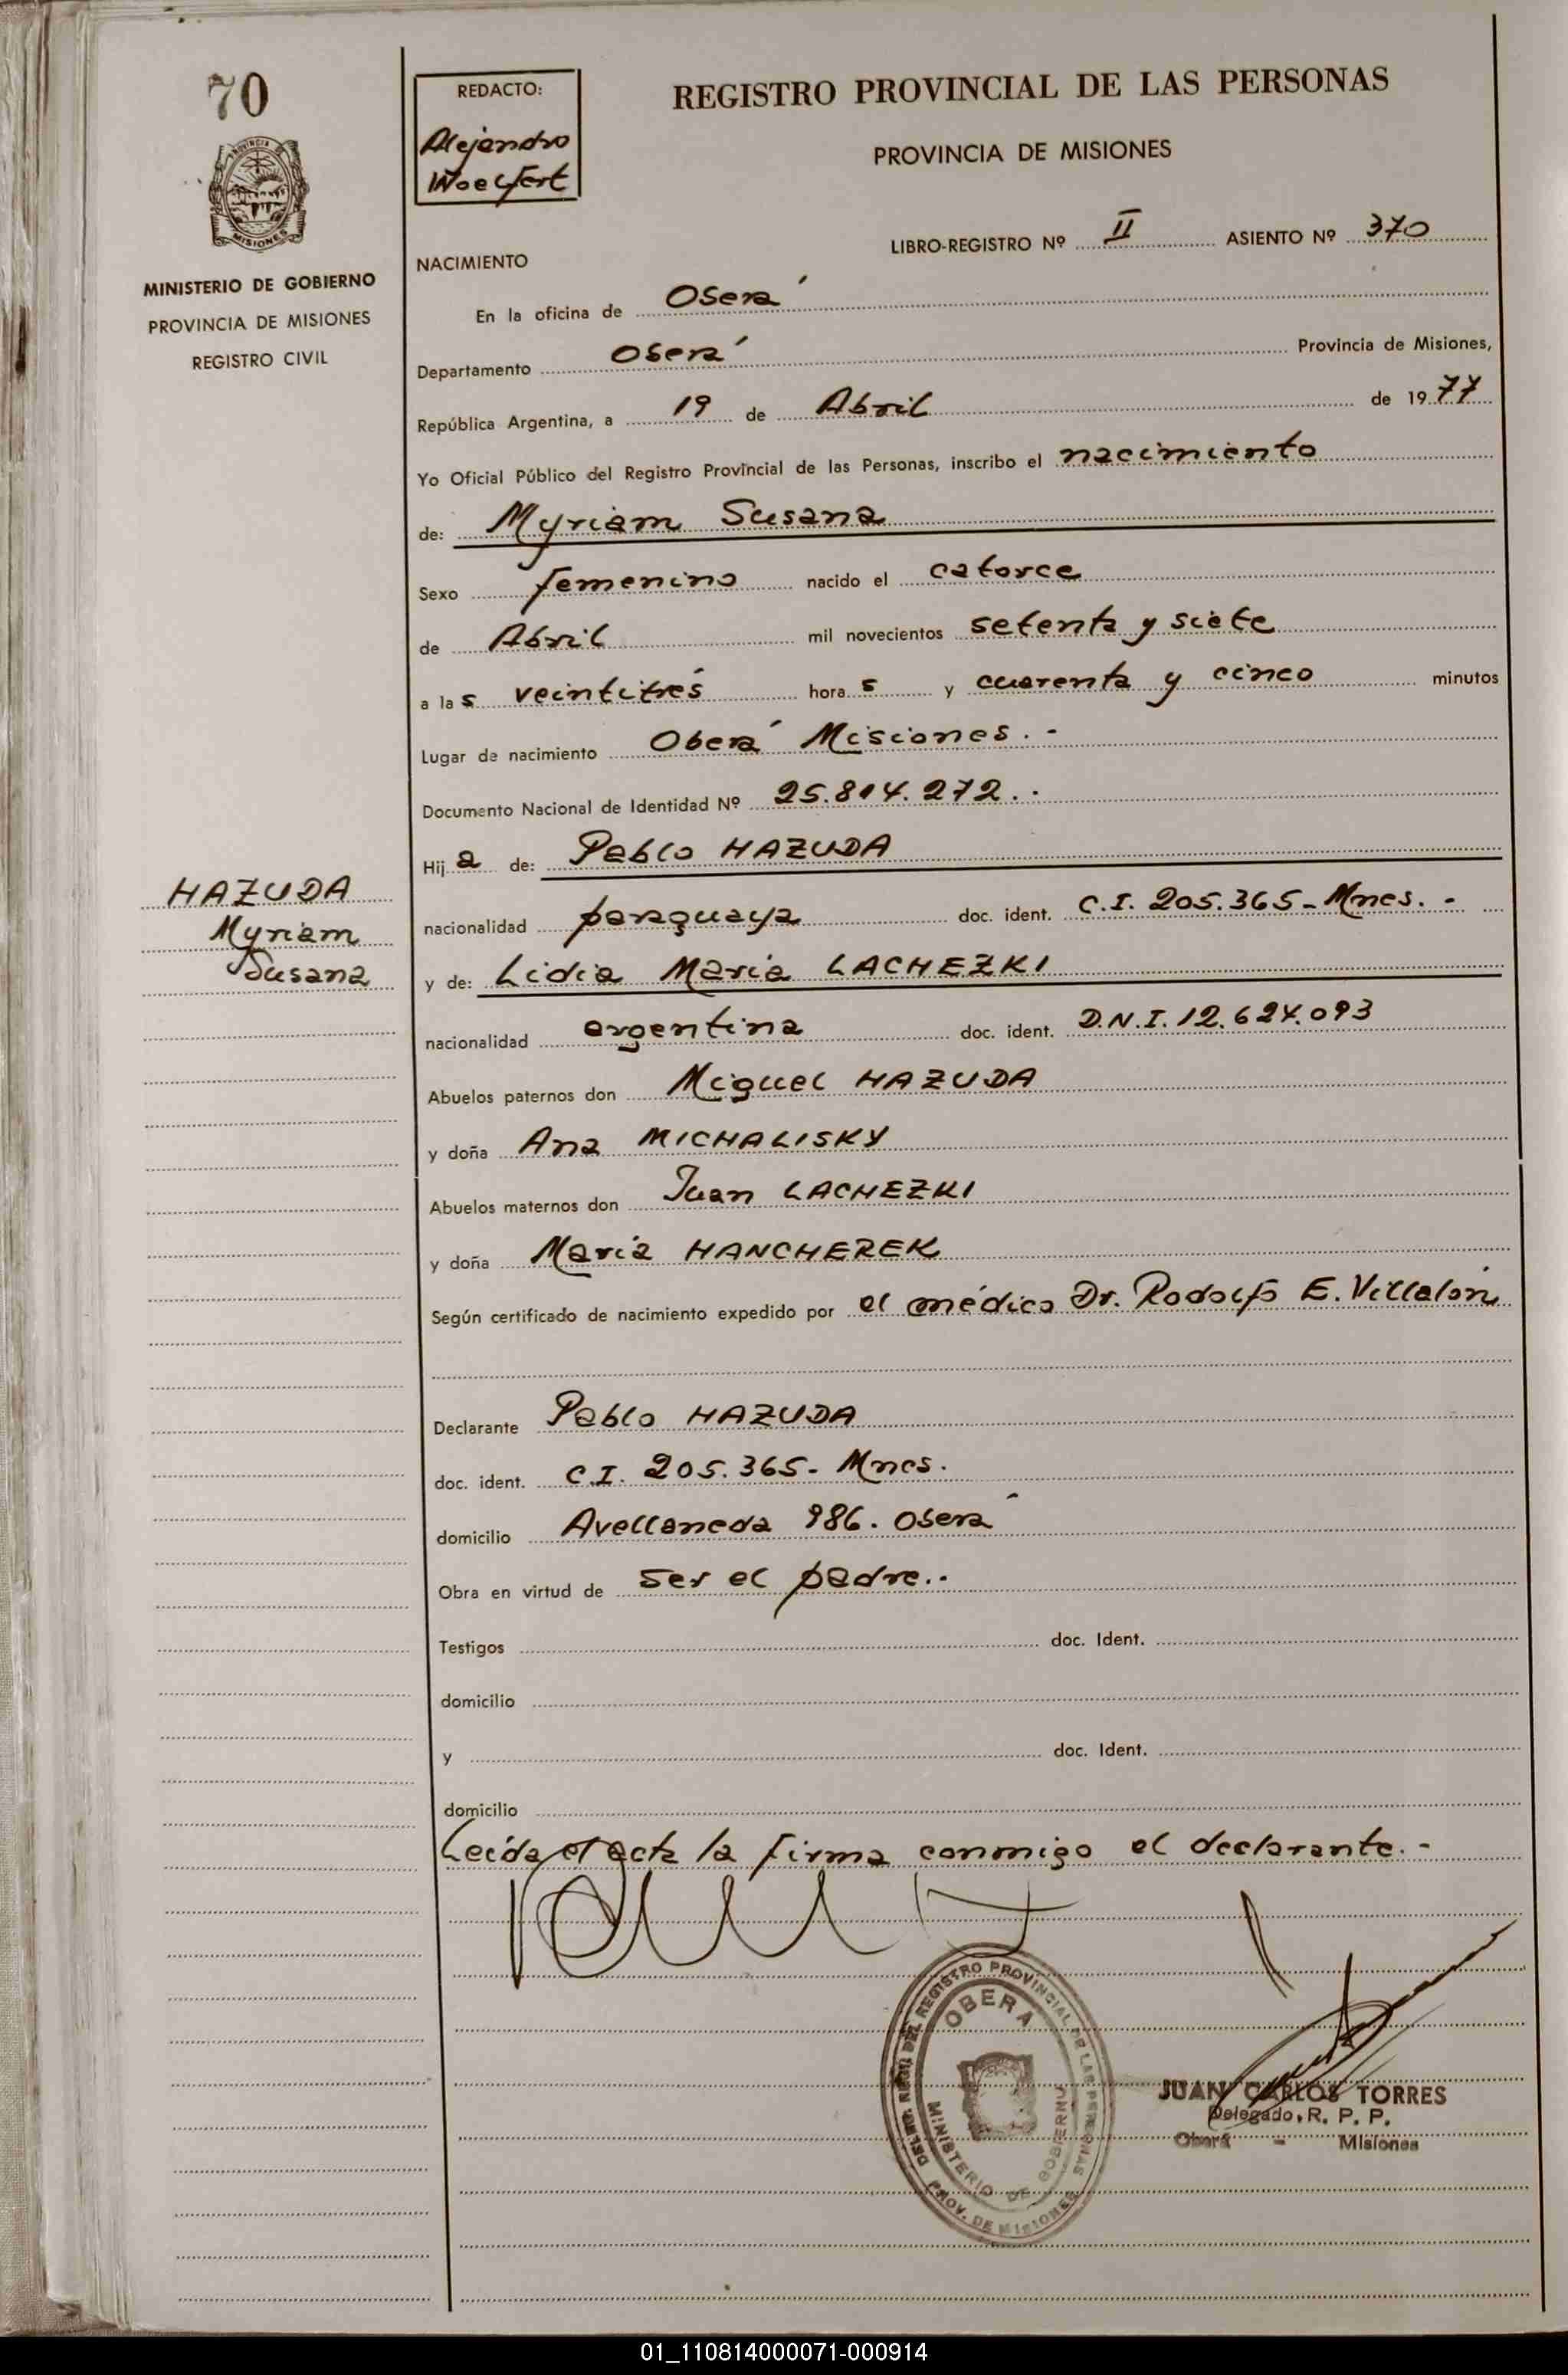 70
PROVINCIA DE
MISIONES
MINISTERIO DE GOBIERNO
PROVINCIA DE MISIONES
REGISTRO CIVIL
HAZUDA
Myriam
Susana
REDACTO:
Alejandro
Woelfert
REGISTRO PROVINCIAL DE LAS PERSONAS
PROVINCIA DE MISIONES
LIBRO-REGISTRO Nº II ASIENTO Nº 370
NACIMIENTO
En la oficina de Oberá
Departamento Oberá Provincia de Misiones,
República Argentina, a 19 de Abril de 1977
Yo Oficial Público del Registro Provincial de las Personas, inscribo el nacimiento
de: Myriam Susana
Sexo femenino nacido el catorce
de Abril mil novecientos setenta y siete
a las veintitrés horas y cuarenta y cinco minutos
Lugar de nacimiento Oberá Misiones.-
Documento Nacional de Identidad Nº 25.814.272.-
Hija de: Pablo HAZUDA
nacionalidad paraguaya doc. ident. C.I. 205.365-Mnes.-
y de: Lidia Maria LACHEZKI
nacionalidad argentina doc. ident. D.N.I. 12.624.093
Abuelos paternos don Miguel HAZUDA
y doña Ana MICHALISKY
Abuelos maternos don Juan LACHEZKI
y doña María HANCHEREK
Según certificado de nacimiento expedido por el médico Dr. Rodolfo E. Villalón
Declarante Pablo HAZUDA
doc. ident. C.I. 205.365- Mnes.
domicilio Avellaneda 986. Oberá
Obra en virtud de ser el padre..
Testigos doc. Ident.
domicilio
y doc. Ident.
domicilio
Leída el acta la firma conmigo el declarante.-
REGISTRO PROVINCIAL DE LAS PERSONAS
OBERA
MINISTERIO DE GOBIERNO
PROV. DE MISIONES
JUAN CARLOS TORRES
Delegado, R. P. P.
Oberá - Misiones
01_110814000071-000914